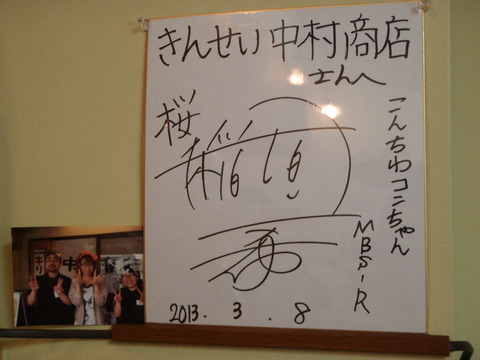 きんせい中村商店
さんへ
こんちわコンちゃん
MBS-R
桜
2013. 3. 8